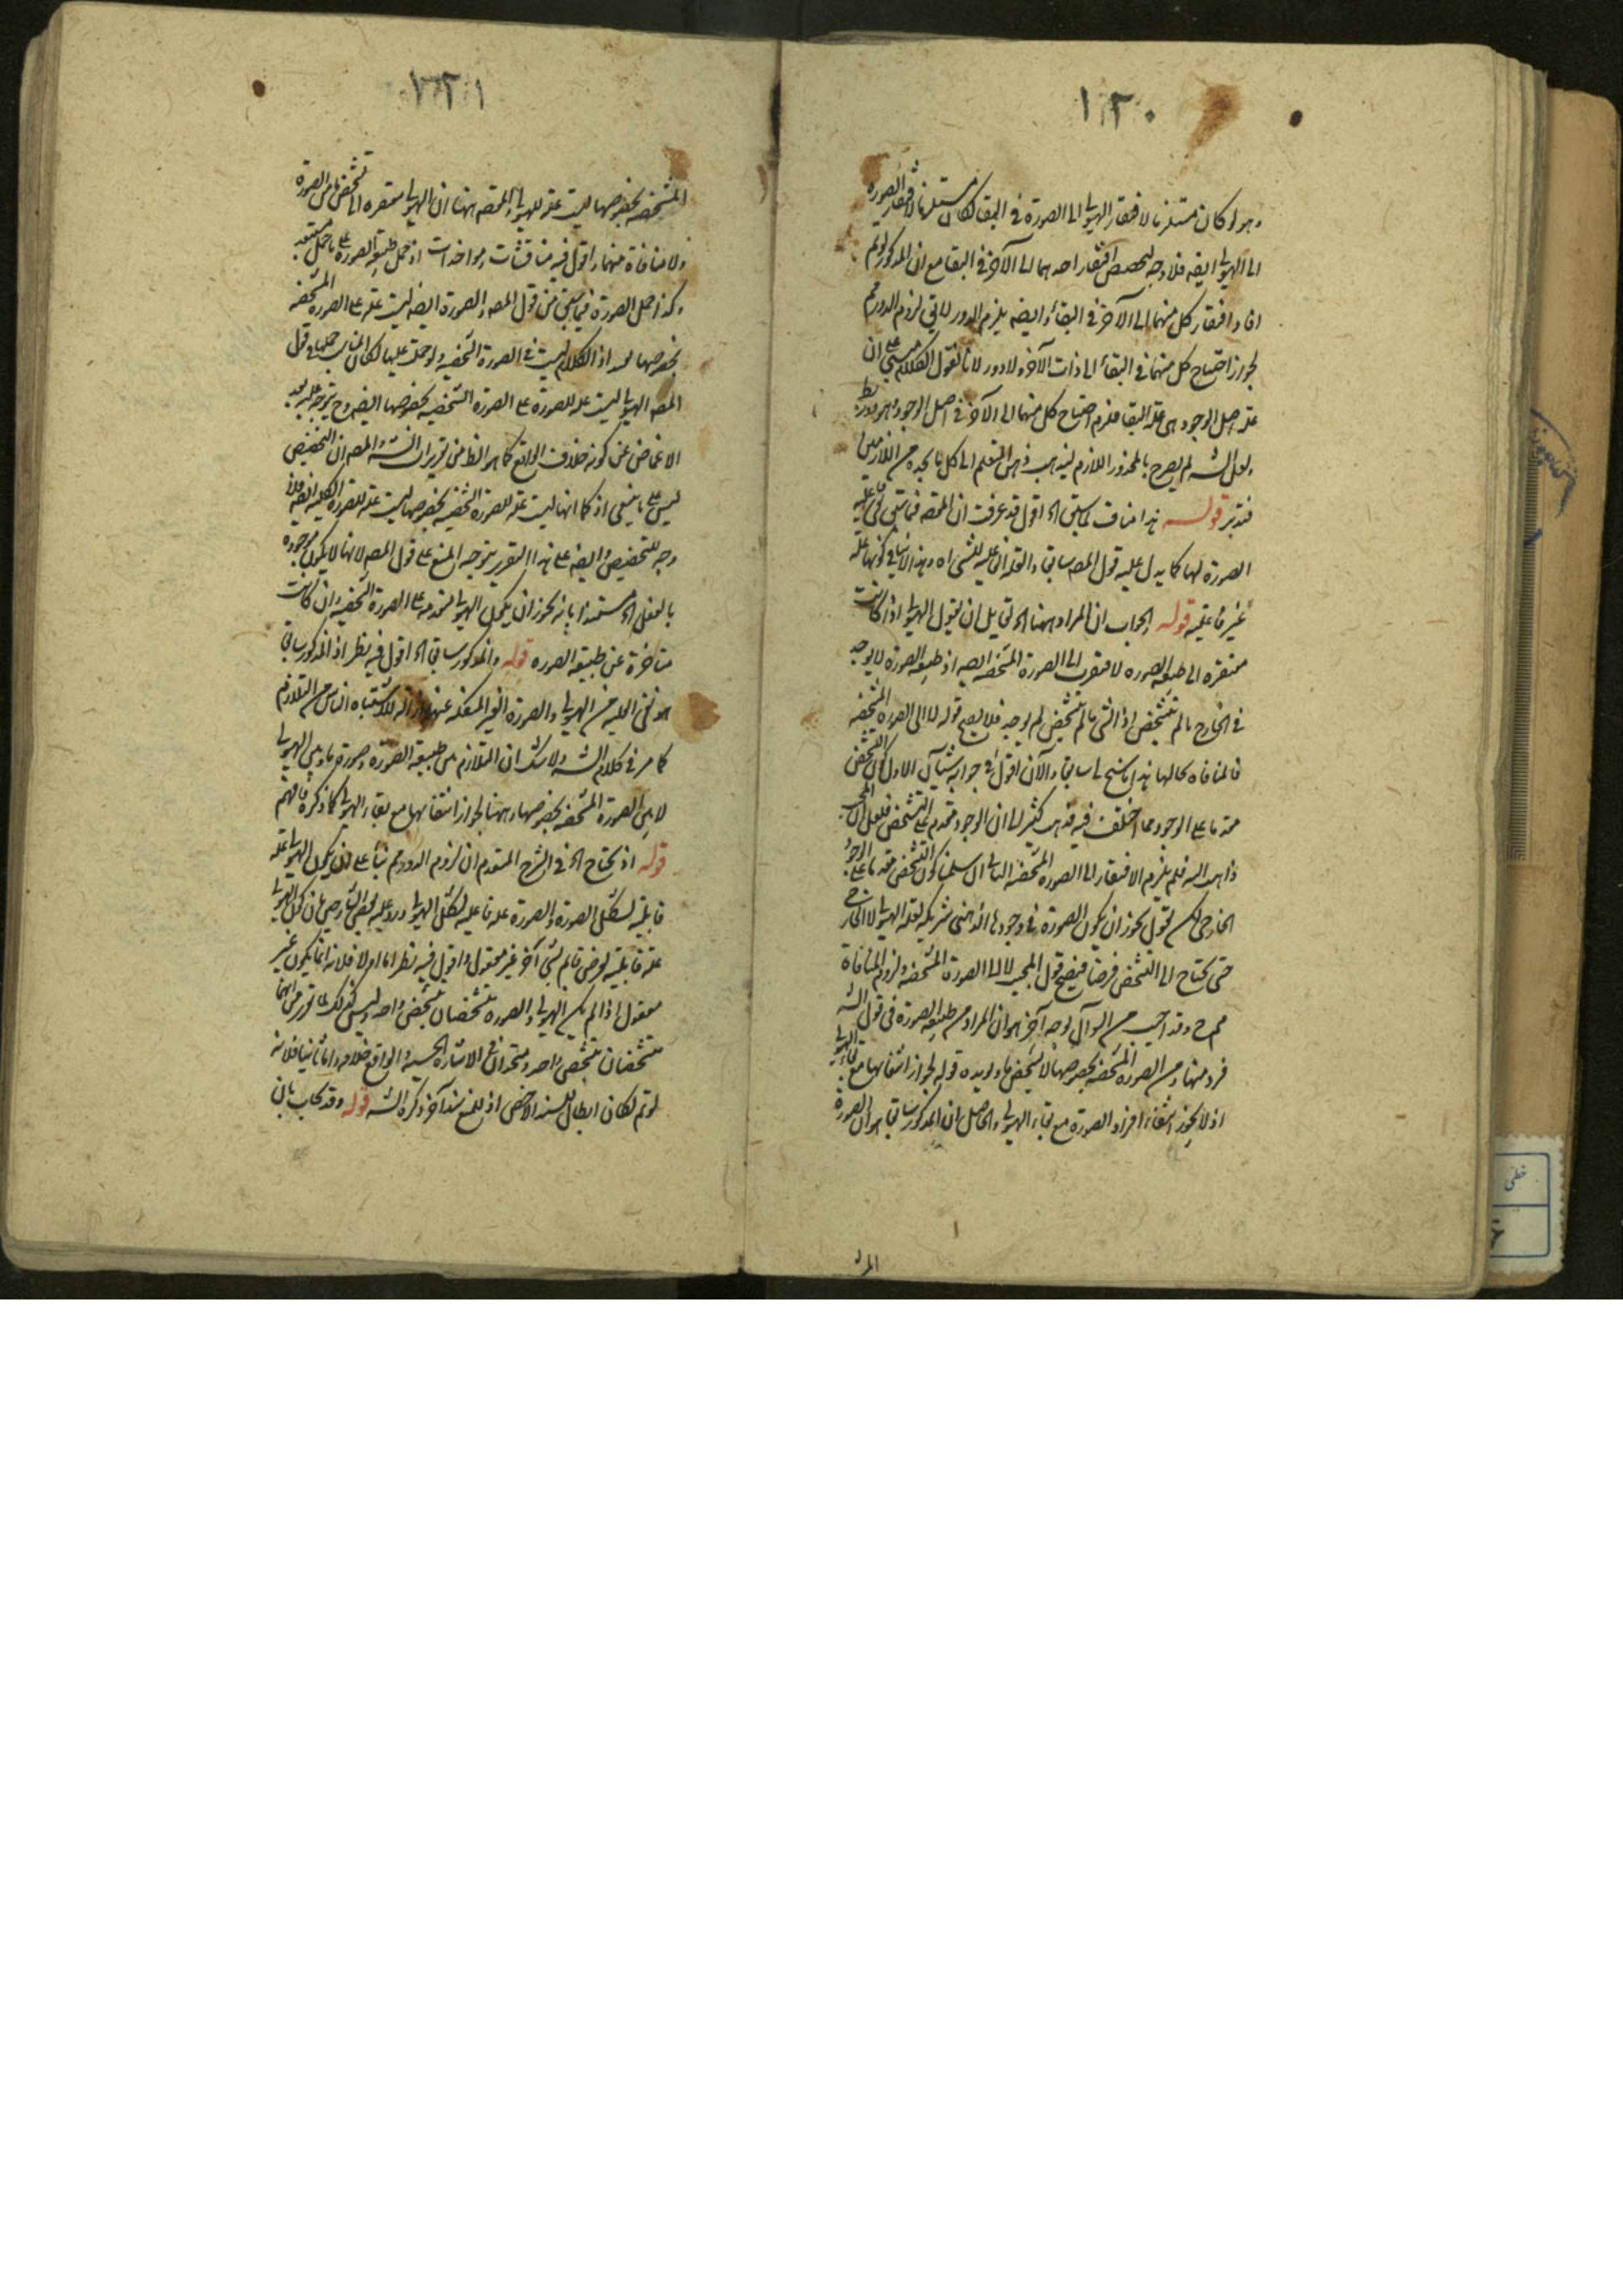 ١٢٠
وهو لو كان مستلزما لافتقار الهيولى الى الصورة فى البقا لكان مستلزما لافتقار الصورة
الى الهيولى ايضه فلا وجه لتخصيص افتقار احدهما الى الآخر فى البقا مع ان المذكور لو تم
افاد افتقار كل منهما الى الآخر فى البقاء وايضه يلزم الدور لا يق لزوم الدور مم
لجواز احتياج كل منهما فى البقاء الى ذات الآخر ولا دور لانا نقول الكلام مبنى على ان
علة اصل الوجود هى علة البقا فلزم احتياج كل منهما الى الآخر فى اصل الوجود وهو دور بط
ولعل الشه لم يصرح بالمحذور اللازم ليذهب ذهن المتعلم الى كل ما يجده من اللازمين
فتدبر قوله هذا مناف لما سبق اه اقول قد عرفت ان المقصه فيما سبق نفى علية
الصورة لها كما يدل عليه قول المصه سابقا والعلة الفاعلية للشى اه وهذا لا ينافى كونها علة
غير فاعلية قوله والجواب ان المراد ههنا اه لقايل ان يقول الهيولى اذا كانت
مفتقرة الى طبيعه الصوره لافتقرت الى الصورة المشخصه ايضه اذ طبيعه الصورة لا يوجد
فى الخارج ما لم يتشخص اذ الشى ما لم يتشخص لم يوجد فلا يصح قوله لا الى الصوره المشخصه
فالمنافاه بحالها هذا ما سنح لى سابقا والآن اقول فى جوابه شيآن الاول كون التشخص
مقدما على الوجود مما اختلف فيه فذهب كثير الى ان الوجود مقدم على التشخص فلعل المجيب
ذاهب اليه فلم يلزم الافتقار الى الصوره المشخصه الثانى ان سلمنا كون التشخص مقدما على الوجود
الخارجى لكن نقول يجوز ان يكون الصورة فى وجودها الذهنى شريكه لعله الهيولى لا الخارجى
حتى يحتاج الى التشخص فرضا فيصح قول المجيب لا الى الصورة المشخصه ولزوم المنافاة
مم ح وقد اجيب من السوآل بوجه آخر هو ان المراد من طبيعه الصورة فى قول الشه
فرد منها ومن الصوره المشخصه بخصوصها لا بشخص ما ويؤيده قوله لجواز انتفائها مع بقاء الهيولى
اذ لا يجوز انتفاء افراد الصورة مع بقاء الهيولى والحاصل ان المذكور سابقا هو ان الصورة
١٢١
المشخصه بخصوصها ليست علة للهيولى والمقصه ههنا ان الهيولى مفتقره الى تشخص ما من الصورة
ولا منافاة منهما واقول فيه مناقشات ومواخذات اذ حمل طبيعه الصورة على ما حمل مستبعد
وكذا حمل الصورة فيما سبق من قول المصه والصورة ايضه ليست علة على الصورة المشخصه
بخصوصها اذ الكلام ليست فى الصورة الشخصيه ولو حملت عليها لكان المناسب حملها فى قول
المصه الهيولى ليست علة للصورة على الصورة الشخصيه بخصوصها ايضه وح يتوجه عليه بعد
الاغماض عن كونه خلاف الواقع كما هو الظ من تقريرات الشه والمصه ان التخصيص
ليس على ما ينبغى اذ كما انها ليست علة للصورة الشخصيه بخصوصها ليست علة للصورة الكليه ايضه فلا
وجه للتخصيص وايضه على هذا التقرير يتوجه المنع على قول المصه لانها لا يكون موجوده
بالفعل اه مستندا بانه يجوز ان يكون الهيولى متقدمه على الصورة الشخصيه وان كانت
متاخرة عن طبيعه الصوره قوله والمذكور سابقا اه اقول فيه نظر اذ المذكور سابقا
هو نفى العليه من الهيولى والصورة الغير المنفكه عنها وازالة للاشتباه الناس من التلازم
كما مر فى كلام الشه ولا شك ان التلازم بين طبيعه الصوره وصورة ما وبين الهيولى
لا بين الصورة المشخصه بخصوصها وههنا لجواز انتفائها مع بقاء الهيولى كما ذكره فافهم
قوله اذ يحتاج اه فى الشرح المتقدم ان لزوم الدور مم بناء على ان يكون الهيولى علة
قابلية لتشكل الصورة والصورة علة فاعليه لتشكل الهيولى ورد عليه بعض الشارحين بان كون الهيولى
علة قابلية لعرض قايم بشى آخر غير معقول واقول فيه نظر اما اولا فلانه انما يكون غير
معقول اذا لم يكن الهيولى والصوره متشخصان بتشخص واحد وليس كذلك لما تقرر من انهما
متشخصان بتشخص واحد ومتحدان فى الاشارة الحسيه والواقع خلافه واما ثانيا فلانه
لو تم لكان ابطال للسند الاخص اذ للمنع سندا آخر ذكره الشه قوله وقد يجاب بان
المش
خطى